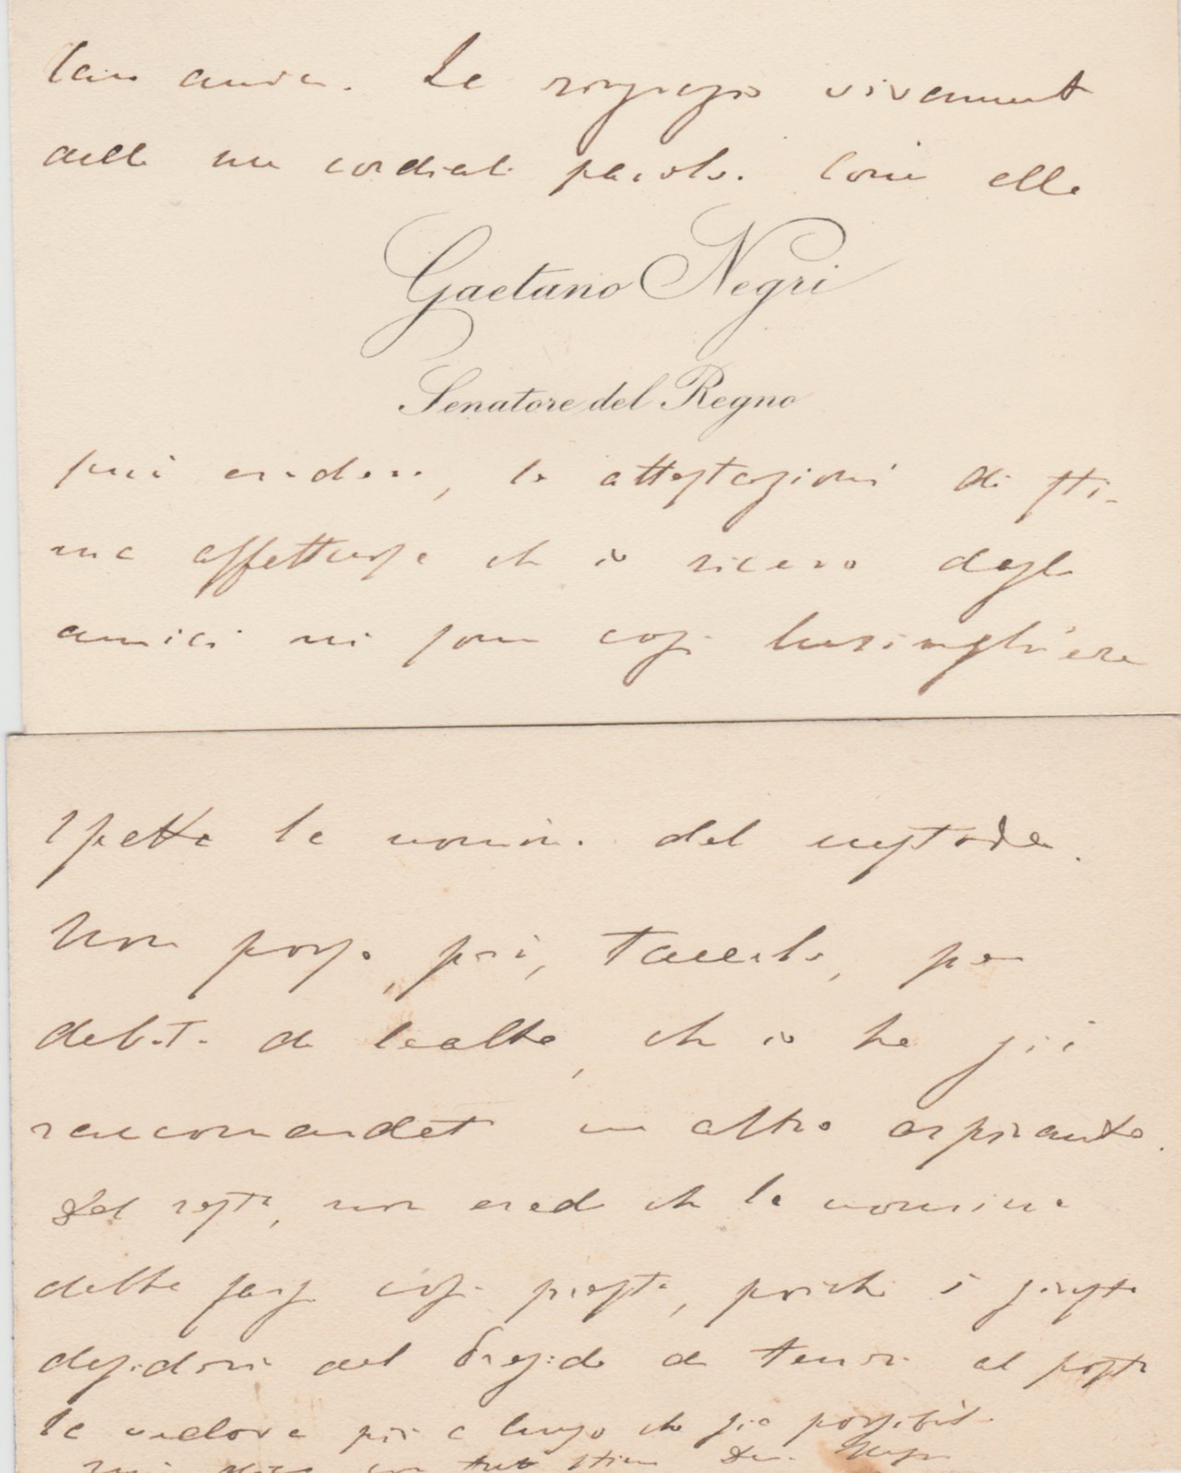 Caro amico. La ringrazio vivamente
delle sue cordiali parole. Come ella
Gaetano Negri
Senatore del Regno
può credere, le attestazioni di sti-
ma affettuosa che io ricevo dagli
amici mi sono così lusinghiere
spetta la nomina del custode.
Non posso, però, tacerle, per
debito di lealtà, che io ho già
raccomandato un altro aspirante.
Del resto, non credo che la nomina
debba farsi così presto, poichè è giusto
desiderio del Preside di tenere al posto
la vedova più a lungo che sia possibile.
con tutta stima Dev. Negri